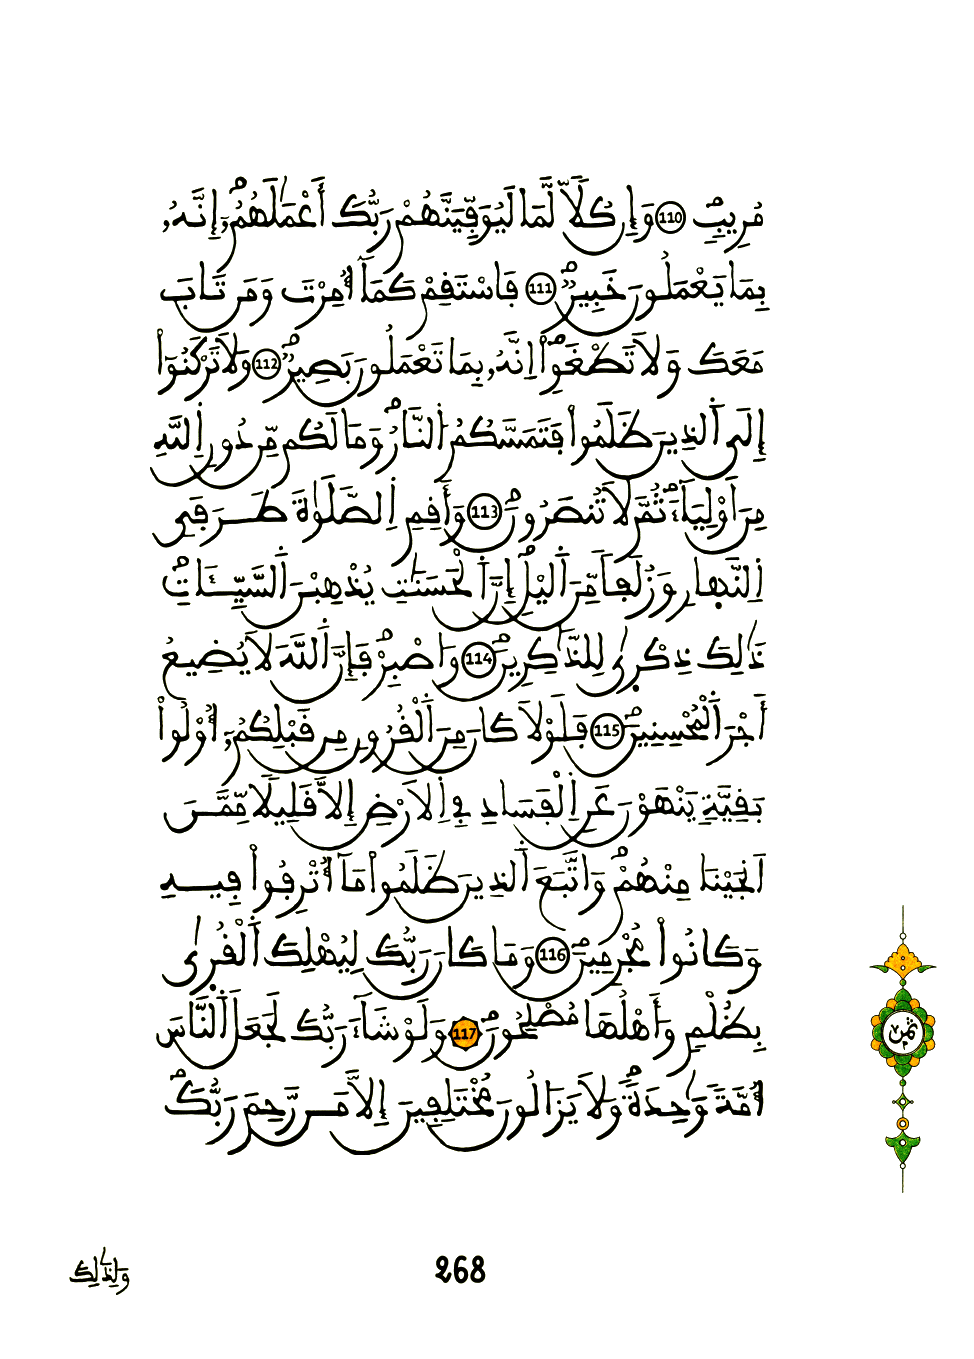 مُرِيبٖ 110 وَإِن كُلّاٗ لَّمَا لَيُوَفِّيَنَّهُمْ رَبُّكَ أَعْمَٰلَهُمُۥٓ إِنَّهُۥ
بِمَا يَعْمَلُونَ خَبِيرٞ 111 فَاسْتَقِمْ كَمَآ أُمِرْتَ وَمَن تَابَ
مَعَكَ وَلَا تَطْغَوِاْ اِنَّهُۥ بِمَا تَعْمَلُونَ بَصِيرٞ 112 وَلَا تَرْكَنُوٓاْ
إِلَى اَلذِينَ ظَلَمُواْ فَتَمَسَّكُمُ اُلنَّارُ وَمَا لَكُم مِّن دُونِ اِللَّهِ
مِنَ اَوْلِيَآءَ ثُمَّ لَا تُنصَرُونَ 113 وَأَقِمِ اِلصَّلَوٰةَ طَرَفَيِ
اِلنَّهارِ وَزُلَفاٗ مِّنَ اَليْلِ إِنَّ اَلْحَسَنَٰتِ يُذْهِبْنَ اَلسَّيِّـَٔاتِ
ذَٰلِكَ ذِكْر۪يٰ لِلذَّٰكِرِينَ 114 وَاصْبِرْ فَإِنَّ اَللَّهَ لَا يُضِيعُ
أَجْرَ اَلْمُحْسِنِينَ 115 فَلَوْلَا كَانَ مِنَ اَلْقُرُونِ مِن قَبْلِكُمُۥٓ أُوْلُواْ
بَقِيَّةٖ يَنْهَوْنَ عَنِ اِلْفَسَادِ فِي اِلَارْضِ إِلَّا قَلِيلاٗ مِّمَّنَ
اَنجَيْنَا مِنْهُمْ وَاتَّبَعَ اَلذِينَ ظَلَمُواْ مَآ أُتْرِفُواْ فِيهِ
وَكَانُواْ مُجْرِمِينَ 116 وَمَا كَانَ رَبُّكَ لِيُهْلِكَ اَلْقُر۪يٰ
بِظُلْمٖ وَأَهْلُهَا مُصْلِحُونَ 117 وَلَوْ شَآءَ رَبُّكَ لَجَعَلَ اَلنَّاسَ
أُمَّةٗ وَٰحِدَةٗ وَلَا يَزَالُونَ مُخْتَلِفِينَ إِلَّا مَن رَّحِمَ رَبُّكَ
ثمن
268
وَلِذَٰلِكَ